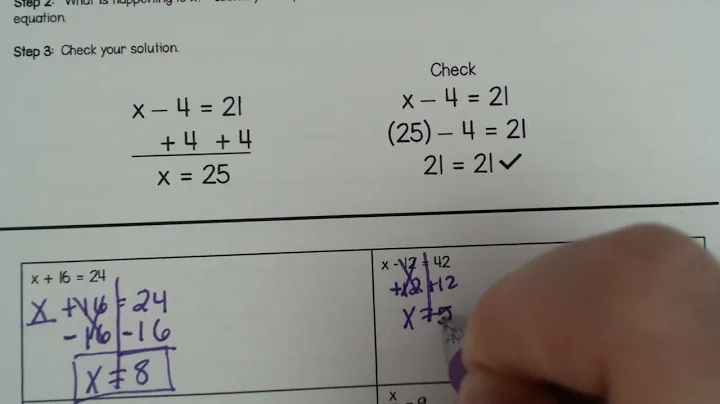 Step 2: What is happening to
equation.
Step 3: Check your solution.
Check
x – 4 = 21
+ 4 + 4
x = 25
x – 4 = 21
(25) – 4 = 21
21 = 21 ✓
x + 16 = 24
x + 16 = 24
- 16 - 16
x = 8
x - 12 = 42
+12 +12
x = 5
x